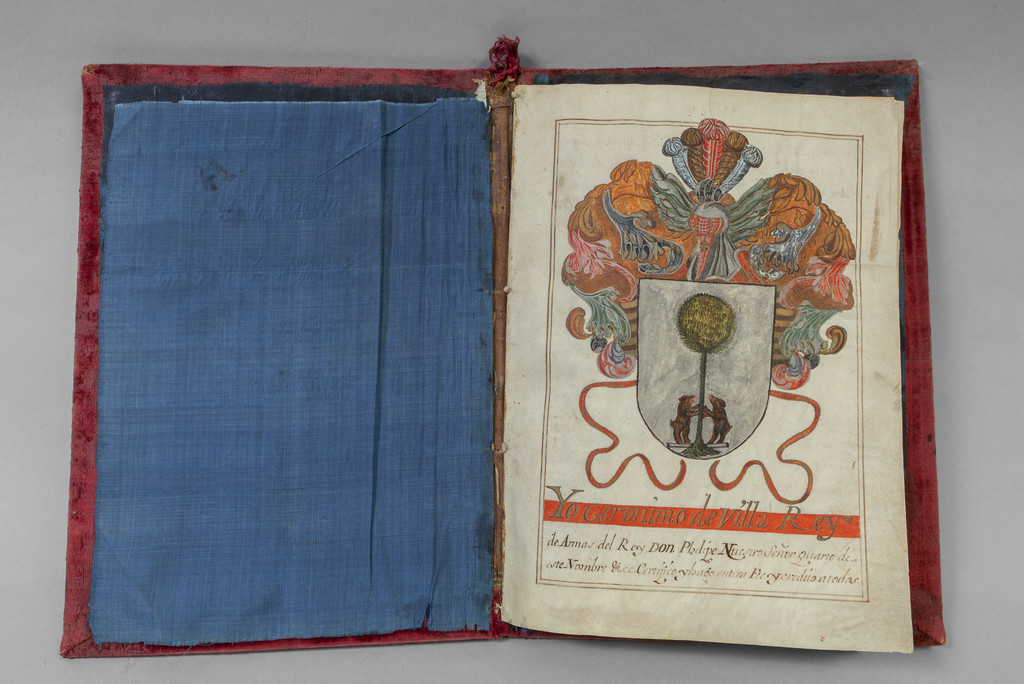 Yo Geronimo de Villa Rey
de Armas del Rey Don Phelipe Nuestro Señor Quarto de
este Nombre Certifico y hago entera Fee y credito a todos